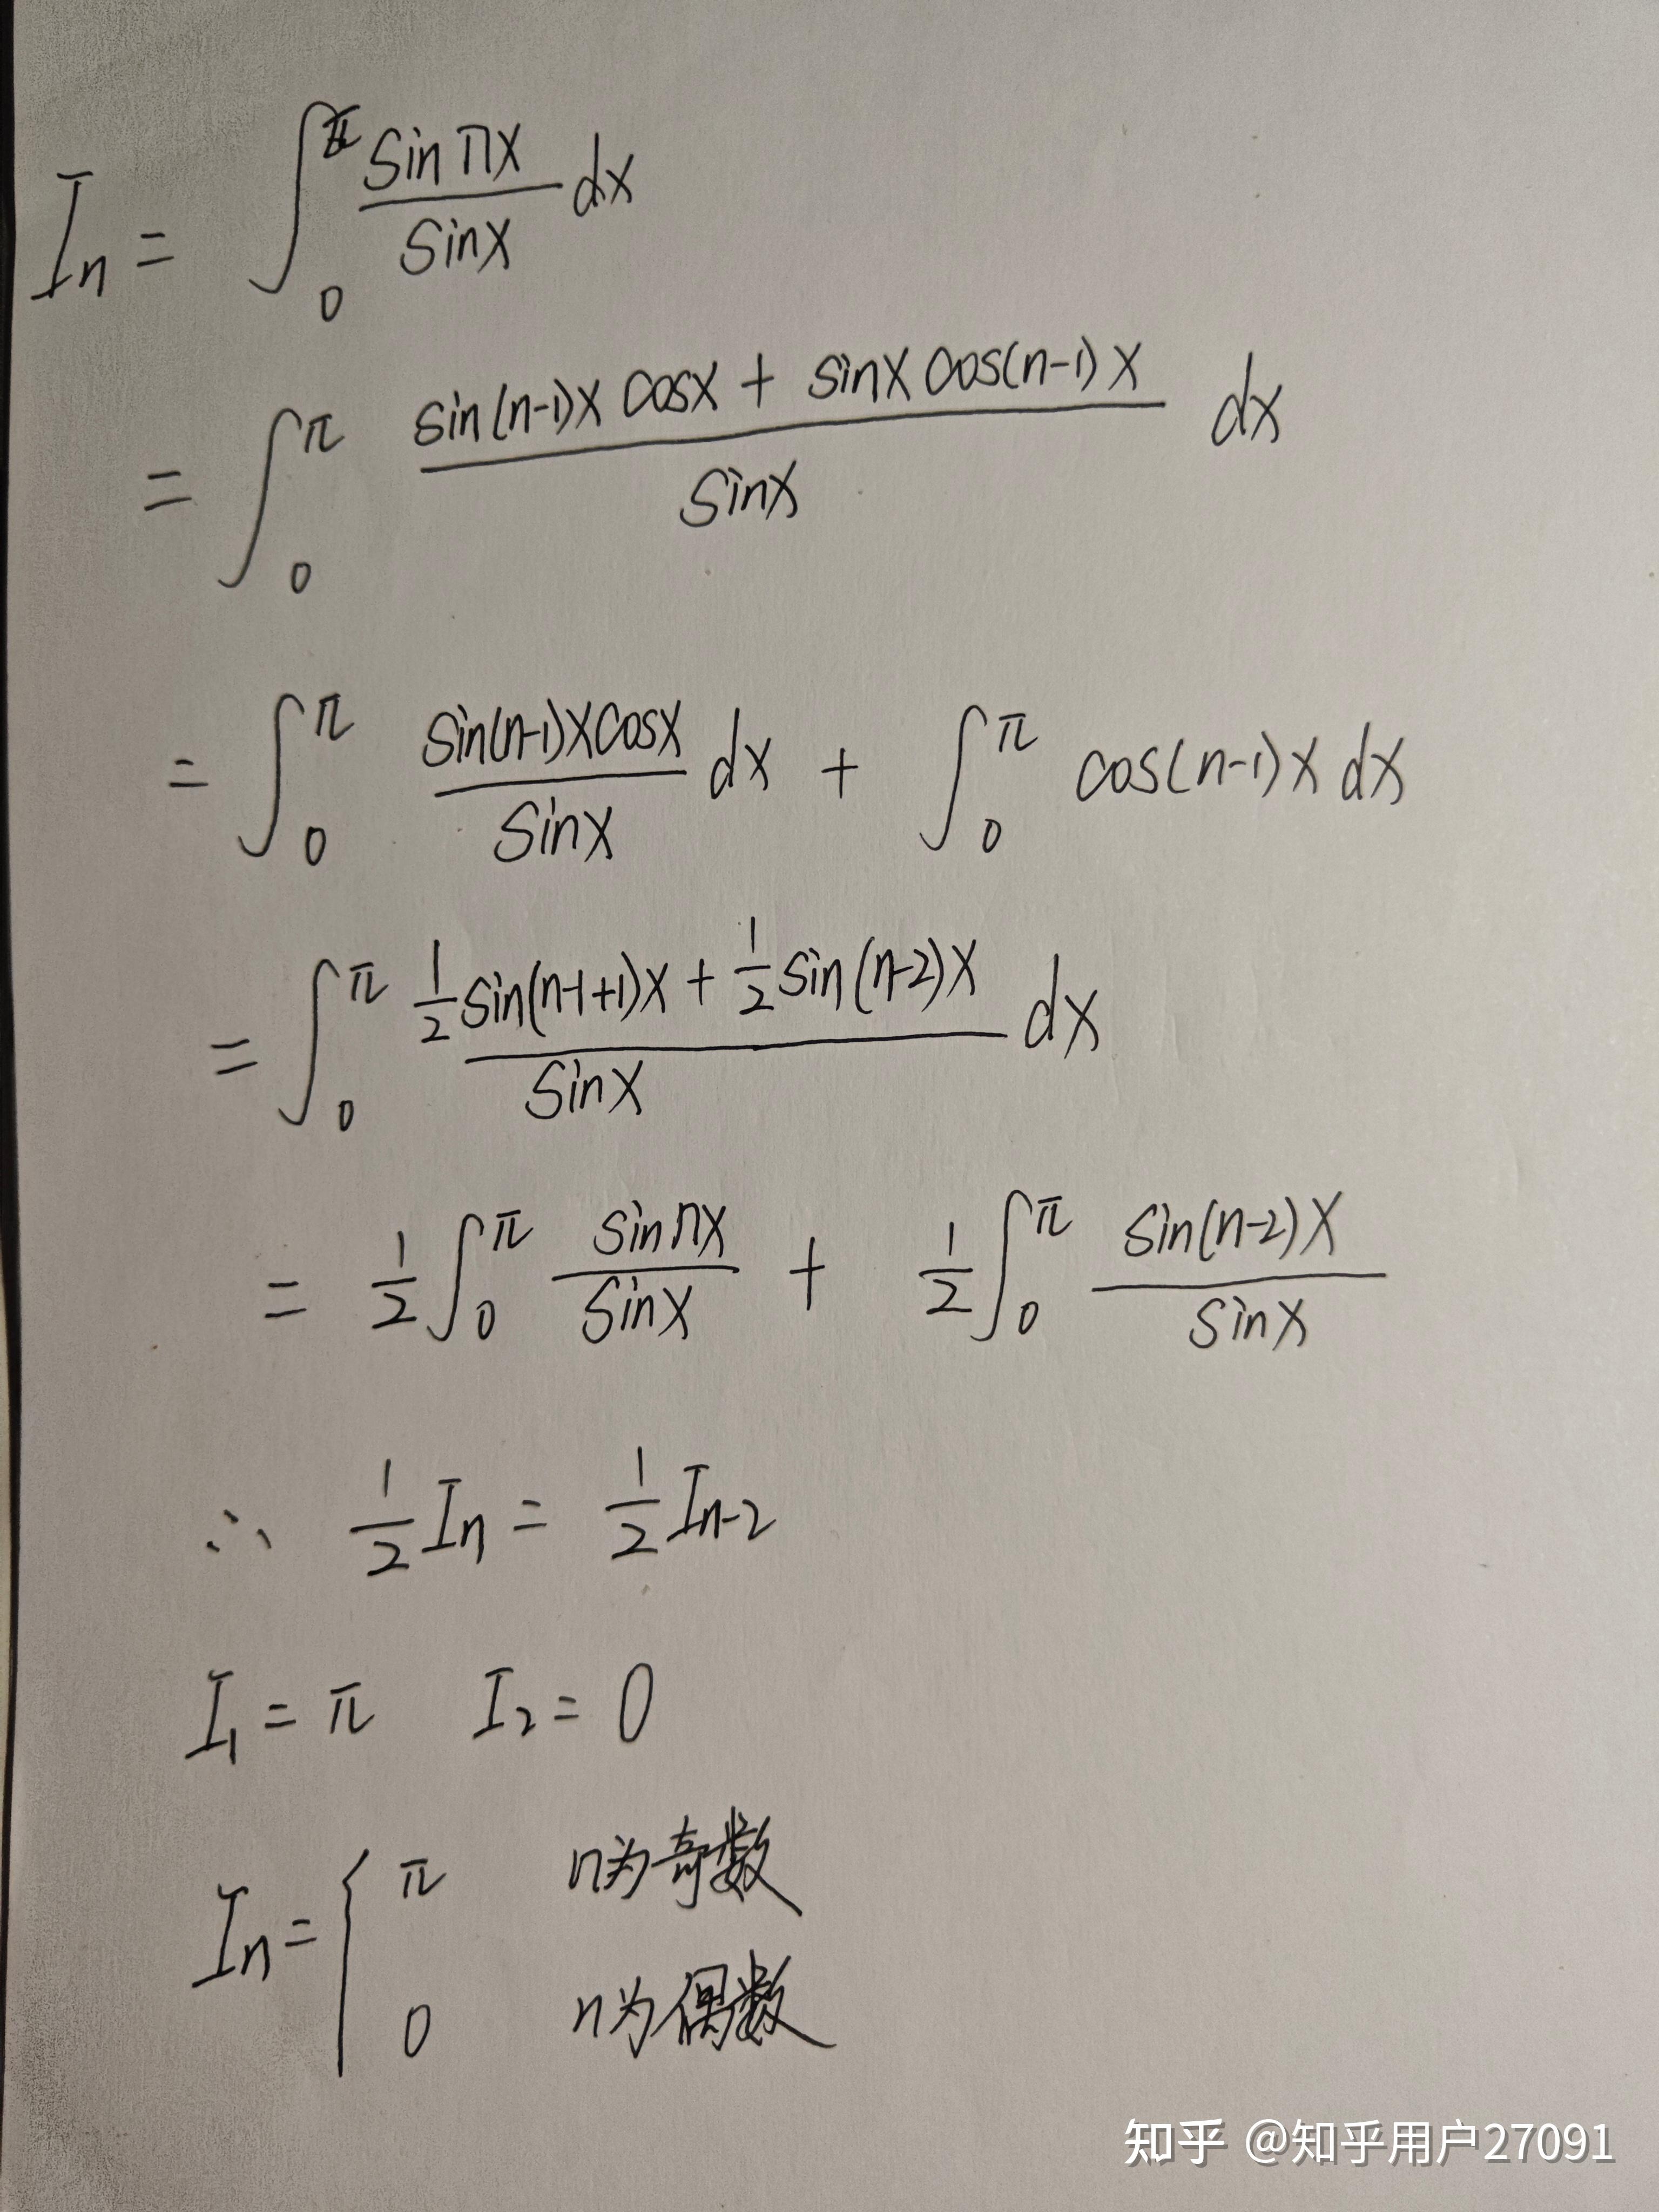 Iₙ = ∫₀^π (sin nx / sin x) dx
= ∫₀^π (sin(n-1)x cosx + sinx cos(n-1)x) / sinx dx
= ∫₀^π (sin(n-1)x cosx / sinx) dx + ∫₀^π cos(n-1)x dx
= ∫₀^π (½ sin(n-1+1)x + ½ sin(n-2)x) / sinx dx
= ½ ∫₀^π (sin nx / sinx) + ½ ∫₀^π (sin(n-2)x / sinx)
∴ ½ Iₙ = ½ Iₙ₋₂
I₁ = π I₂ = 0
Iₙ = { π n为奇数
0 n为偶数
知乎 @知乎用户27091